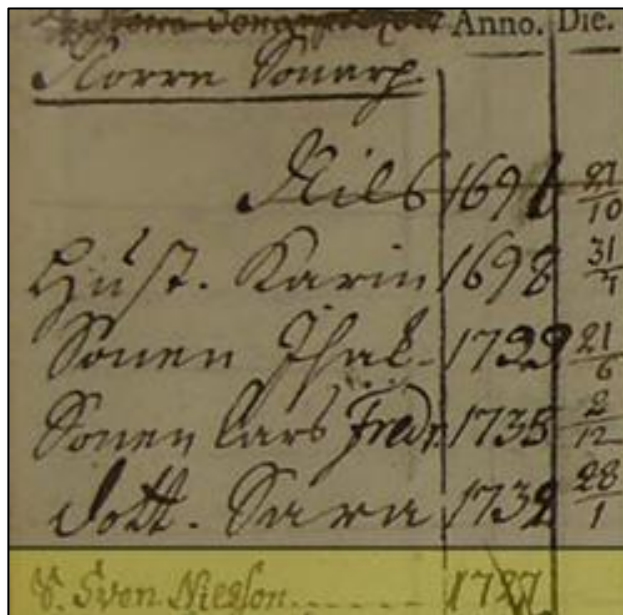 Anno. Die.
Norra Sonarp.
Nils 1691 27/10
Hust. Karin 1698 31
Sonen Isak 1729 21/6
Sonen Lars Fredr. 1735 2/12
dott. Sara 1732 28/1
Sven Nilsson 1727